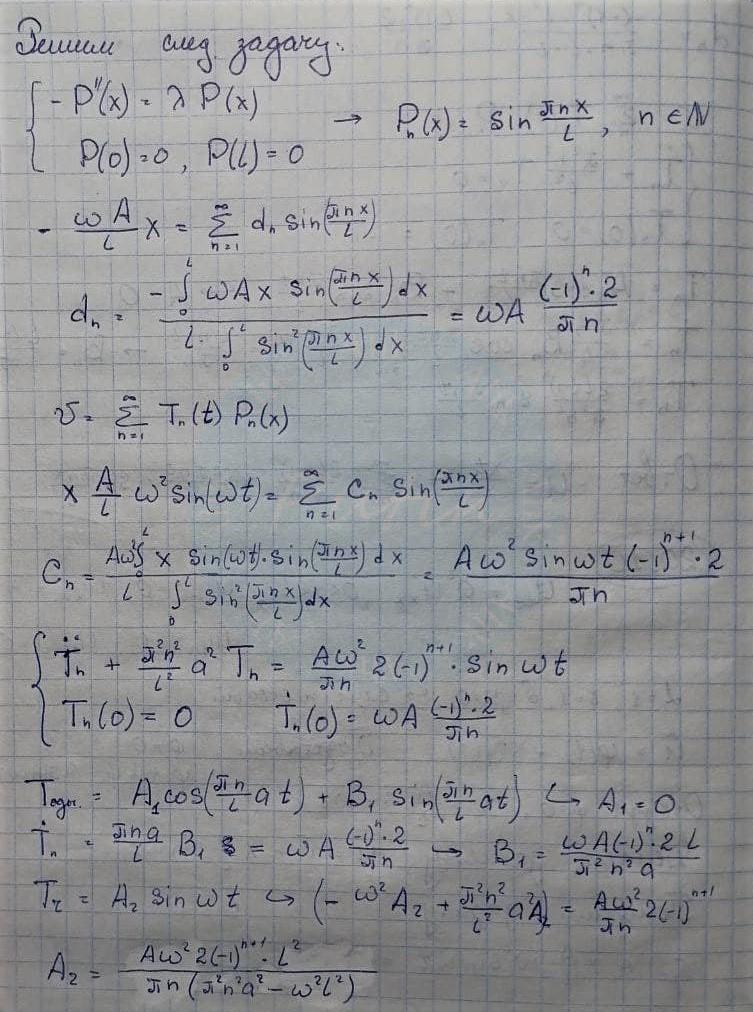 Решим след задачу:
{ -P''(x) = λ P(x)
P(0) = 0, P(l) = 0 → Pₙ(x) = sin πnx/L, n ∈ ℕ
- ωA/L x = ∑_{n=1}^{∞} dₙ sin(πnx/L)
dₙ = (-∫₀ᴸ ωAx sin(πnx/L) dx) / (L · ∫₀ᴸ sin²(πnx/L) dx) = ωA ((-1)ⁿ · 2)/(πn)
v = ∑_{n=1}^{∞} Tₙ(t) Pₙ(x)
x A/L ω² sin(ωt) = ∑_{n=1}^{∞} Cₙ sin(πnx/L)
Cₙ = (Aω² ∫₀ᴸ x sin(ωt) · sin(πnx/L) dx) / (L ∫₀ᴸ sin²(πnx/L) dx) = (Aω² sin ωt (-1)ⁿ⁺¹ · 2)/(πn)
{ T̈ₙ + π²n²/L² a² Tₙ = Aω²/(πn) 2(-1)ⁿ⁺¹ · sin ωt
Tₙ(0) = 0 Ṫₙ(0) = ωA ((-1)ⁿ · 2)/(πn)
Tодн. = A₁ cos(πn/L at) + B₁ sin(πn/L at) ↪ A₁ = 0
Ṫₙ = πna/L B₁ = ωA ((-1)ⁿ · 2)/(πn) → B₁ = (ωA(-1)ⁿ · 2L)/(π²n²a)
Tч = A₂ sin ωt ↪ (-ω²A₂ + π²n²/L² a²A₂) = Aω²/(πn) 2(-1)ⁿ⁺¹
A₂ = (Aω² 2(-1)ⁿ⁺¹ · L²) / (πn(π²n²a² - ω²L²))